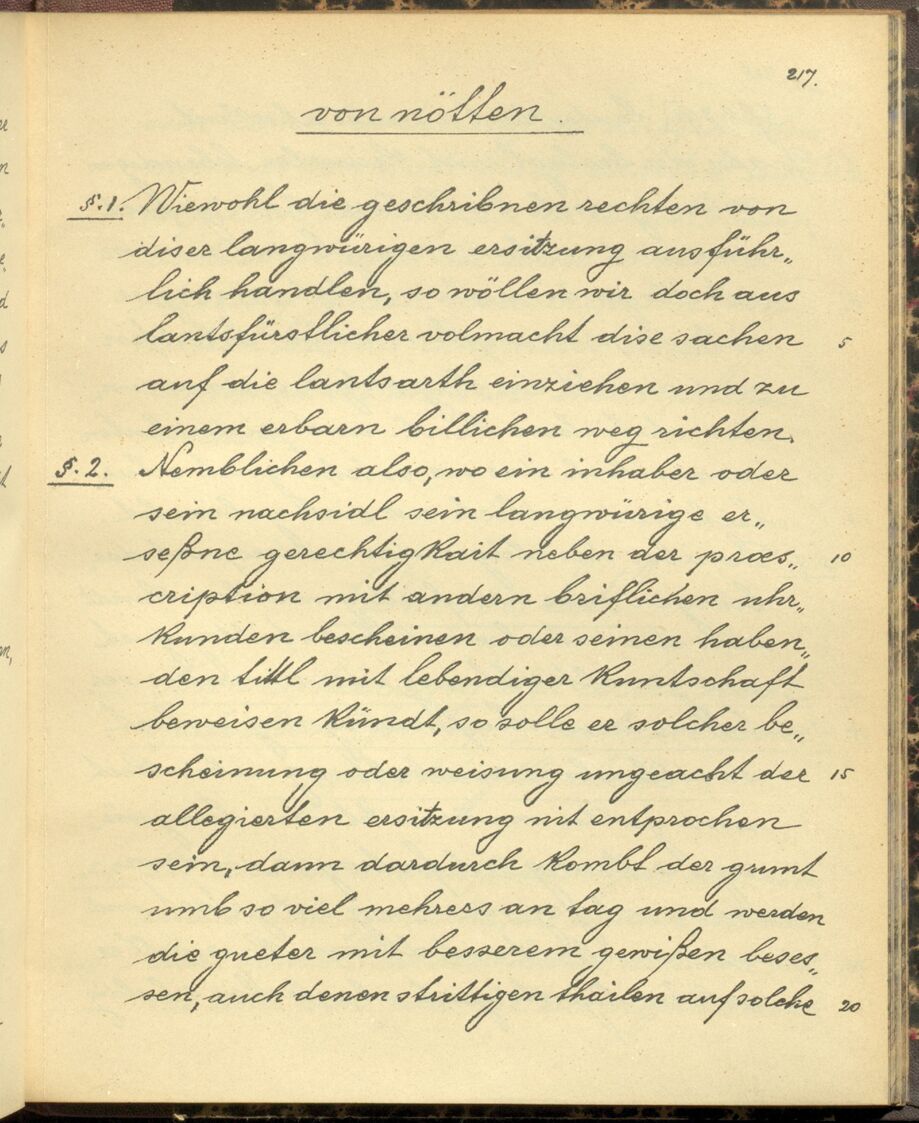 217.
von nötten
§. 1. Wiewohl die geschribnen rechten von
diser langwürigen ersitzung ausführ„
lich handlen, so wöllen wir doch aus
lantsfürstlicher volmacht dise sachen 5
auf die lantsarth einziehen und zu
einem erbarn billichen weg richten.
§. 2. Nemblichen also, wo ein inhaber oder
sein nachsidl sein langwürige er„
seßne gerechtigkait neben der præs„ 10
cription mit andern briflichen uhr„
kunden bescheinen oder seinen haben„
den tittl mit lebendiger kuntschaft
beweisen kündt, so solle er solcher be„
scheinung oder weisung ungeacht der 15
allegierten ersitzung nit entprochen
sein, dann dardurch kombt der grunt
umb so viel mehrers an tag und werden
die gueter mit besserem gewißen beses„
sen, auch denen strittigen thailen auf solche 20